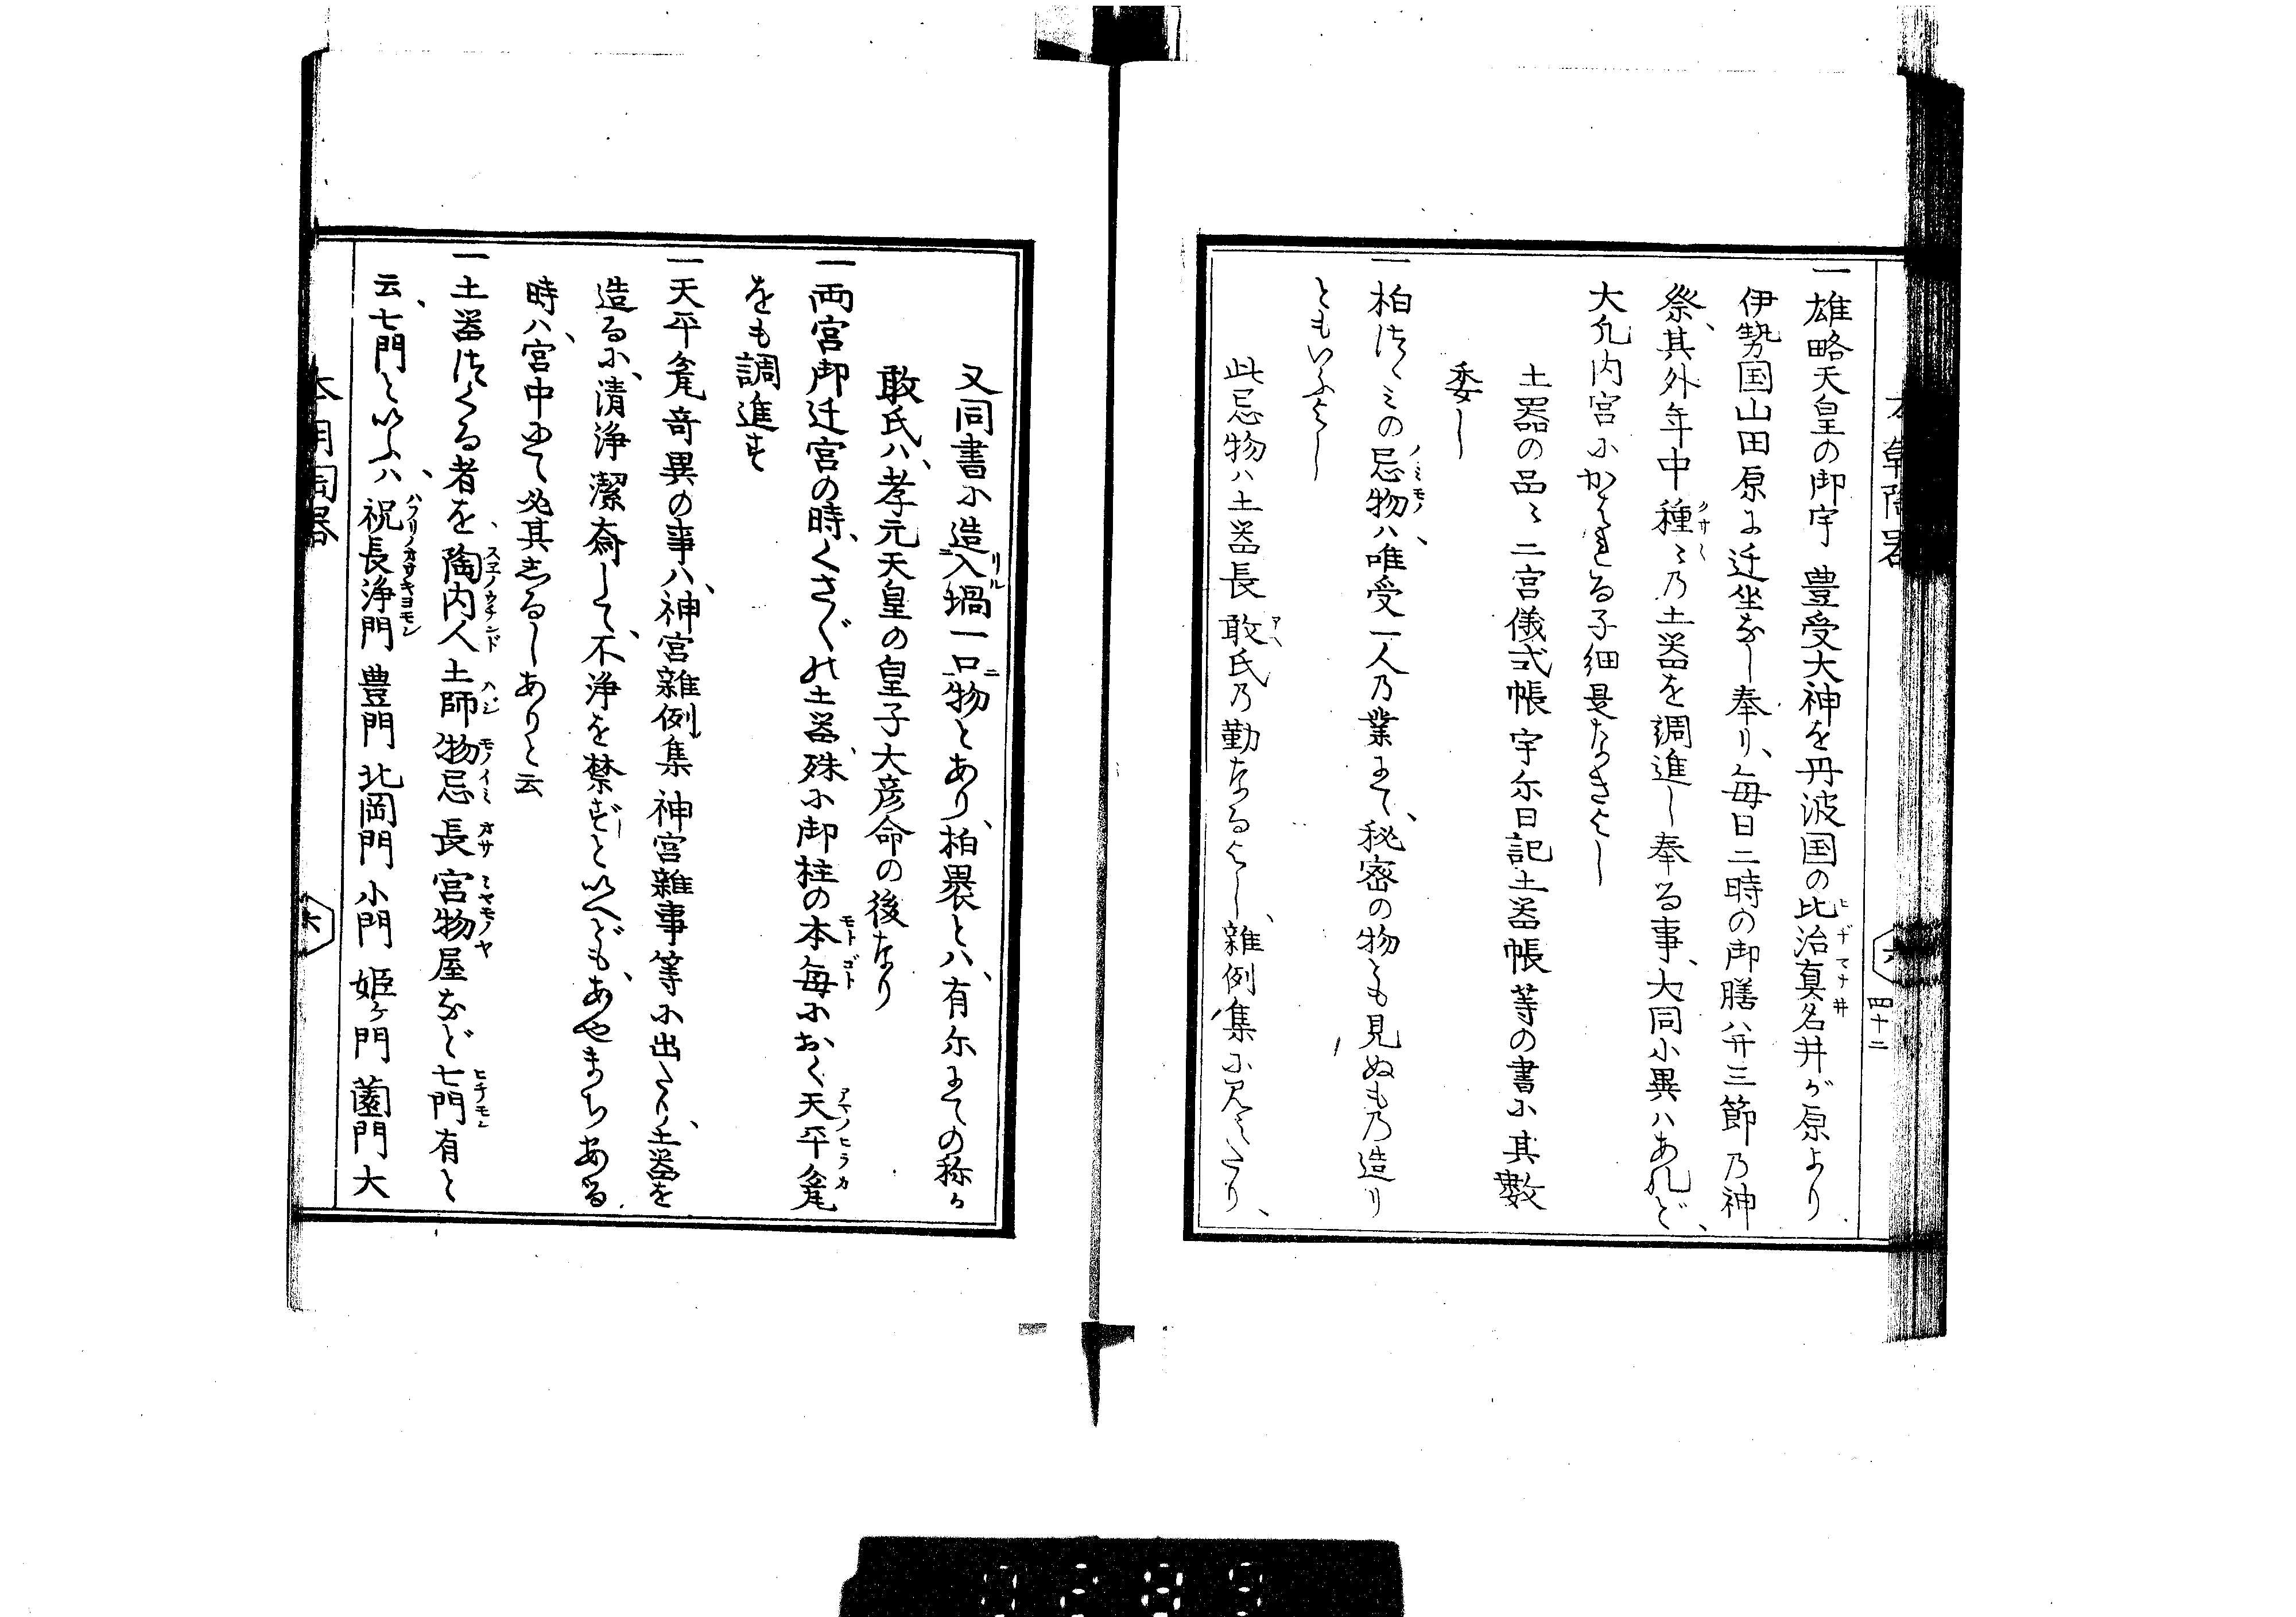 四十二
一雄略天皇の御宇 豊受大神を丹波国の比治真名井が原より
伊勢国山田原に迁坐なし奉り、毎日二時の御膳ハ并三節乃神
祭、其外年中種〻乃土器を調進し奉る事、大同小異ハあれど、
大凡内宮にかはれる子細是なきよし
土器の品〻二宮儀式帳宇尓日記土器帳等の書に其數
委し
一柏はゝミの忌物ハ、唯受一人乃業にて、秘密の物とも見ぬも乃造り
ともいふよし
此忌物ハ土器長敢氏乃勤なるよし、雑例集に見えたり、
又同書に造入堝一口物とあり、柏畏とハ、有尓にての称か
敢氏ハ、孝元天皇の皇子大彦命の後なり
一両宮御迁宮の時、くさ〴〵の土器、殊に御柱の本毎におく天平瓮
をも調進す
一天平瓮奇異の事ハ、神宮雑例集 神宮雑事等に出たり、土器を
造るに、清浄潔斎して、不浄を禁ずといへども、あやまちある
時ハ、宮中にて必其しるしありと云
一土器はくる者を、陶内人土師物忌長宮物屋など七門有と
云、七門といふハ、祝長浄門 豊門 北岡門 小門 姫ケ門 薗門 大
本朝陶器
六